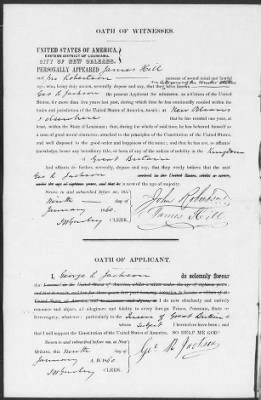 OATH OF WITNESSES.
UNITED STATES OF AMERICA,
EASTERN DISTRICT OF LOUISIANA.
CITY OF NEW ORLEANS.
PERSONALLY APPEARED James Hill
and Jno Robertson persons of sound mind and lawful
age, who, being duly sworn, severally depose and say, that they have known
Geo R Jackson the present Applicant for admission as a citizen of the United
States, for more than five years last past, during which time he has continually resided within the
limits and jurisdiction of the United States, to wit: at New Orleans
& elsewhere that he has resided one year, at
least, within the State of Louisiana; that, during the whole of said time, he has behaved himself as
a man of good moral character; attached to the principles of the Constitution of the United States,
and well disposed to the good order and happiness of the same; and they do not know that he has
borne any hereditary title, or been of any of the orders of nobility in the Kingdom
of Great Britain
And affiants do further, severally, depose and say, that they verily believe that the said
Geo R Jackson arrived in the United States, whilst
under the age of eighteen years, and that he is now of the age of majority.
Sworn to and subscribed before me, at New Orleans, this
Ninth day of
January 1860.
CLERK.
John Robertson
James Hill
OATH OF APPLICANT.
I, George R Jackson do solemnly swear
that I do now absolutely and entirely
renounce and abjure, all allegiance and fidelity to every foreign Prince, Potentate, State or
Sovereignty, whatever; particularly to the Queen of Great Britain
whose Subject I heretofore have been; and
that I will support the Constitution of the United States. SO HELP ME GOD!
Sworn to and subscribed before me, at New
Orleans this Ninth day of
January A. D. 1860
CLERK.
Geo R Jackson